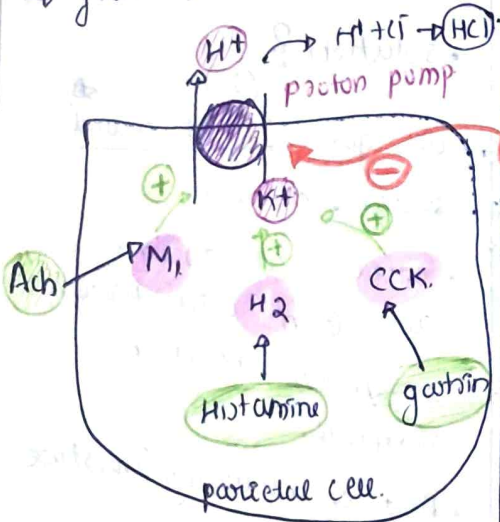 H+
H+ + Cl- → HCl
proton pump
-
+
K+
+
Ach
M1
+
CCK
H2
Histamine
gastrin
parietal cell.